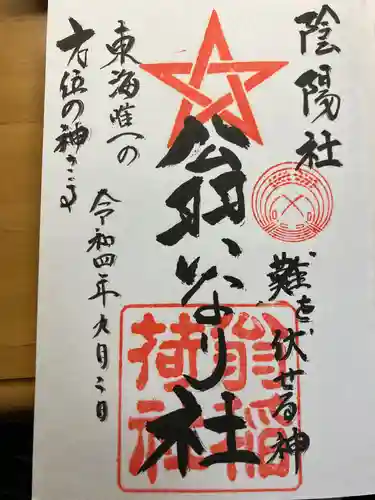 陰陽社
難を伏せる神
翁いなり社
翁稲
荷社
東海唯一の
方位の神さま
令和四年九月二日